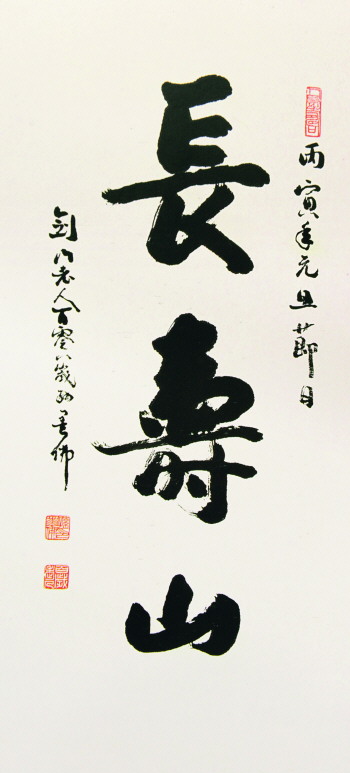 丙寅年元旦節日
長壽山
剑门老人百零八歲孙墨佛